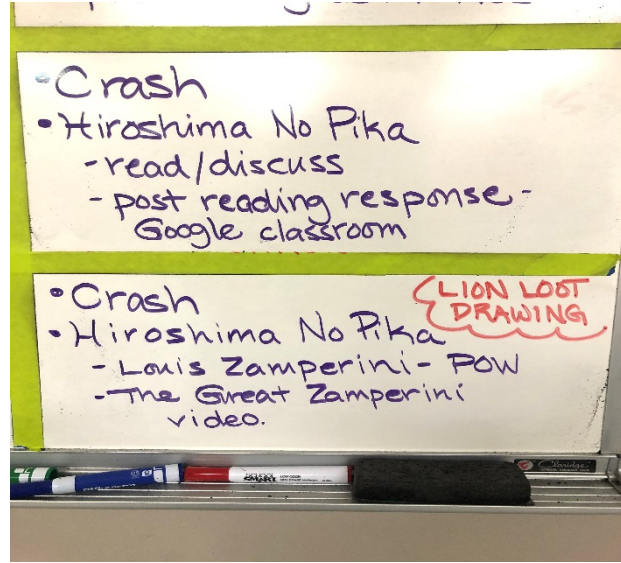 • Crash
• Hiroshima No Pika
- read/discuss
- post reading response -
Google classroom
• Crash
LION LOOT
DRAWING
• Hiroshima No Pika
- Louis Zamperini - POW
- The Great Zamperini
video.
SCHOOL
SMART
Claridge